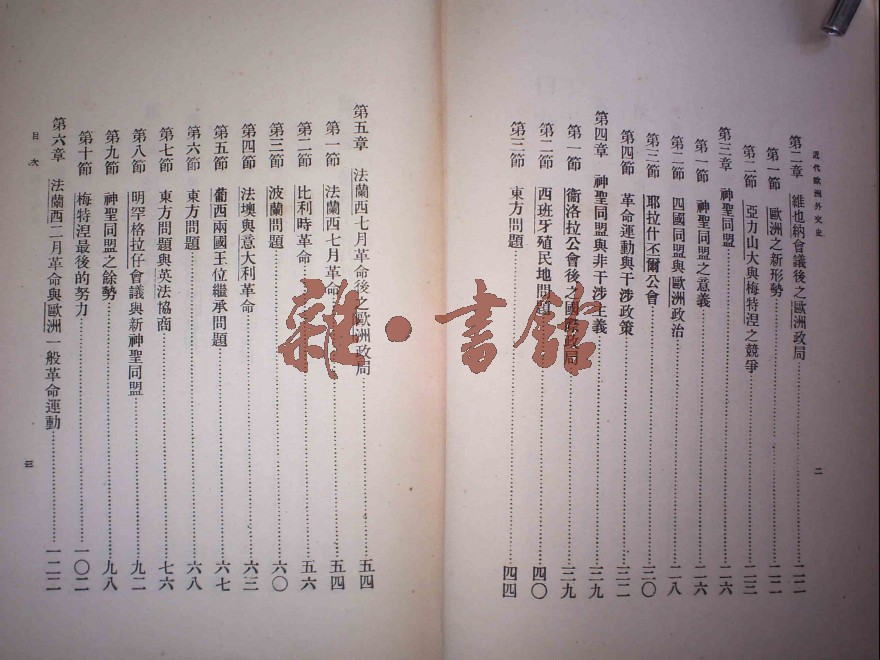 近代歐洲外交史
二
第二章 維也納會議後之歐洲政局 二二
第一節 歐洲之新形勢 二二
第二節 亞力山大與梅特涅之競爭 二三
第三章 神聖同盟 二六
第一節 神聖同盟之意義 二六
第二節 四國同盟與歐洲政治 二八
第三節 耶拉什丕爾公會 三〇
第四節 革命運動與干涉政策 三二
第四章 神聖同盟與非干涉主義 三九
第一節 衞洛拉公會後之國際政局 三九
第二節 西班牙殖民地問題 四〇
第三節 東方問題 四四
第五章 法蘭西七月革命後之歐洲政局 五四
第一節 法蘭西七月革命 五四
第二節 比利時革命 五六
第三節 波蘭問題 六〇
第四節 法墺與意大利革命 六三
第五節 葡西兩國王位繼承問題 六七
第六節 東方問題 六八
第七節 東方問題與英法協商 七六
第八節 明罕格拉仔會議與新神聖同盟 九二
第九節 神聖同盟之餘勢 九八
第十節 梅特涅最後的努力 一〇二
第六章 法蘭西二月革命與歐洲一般革命運動 一二二
目次
三
雜·書館